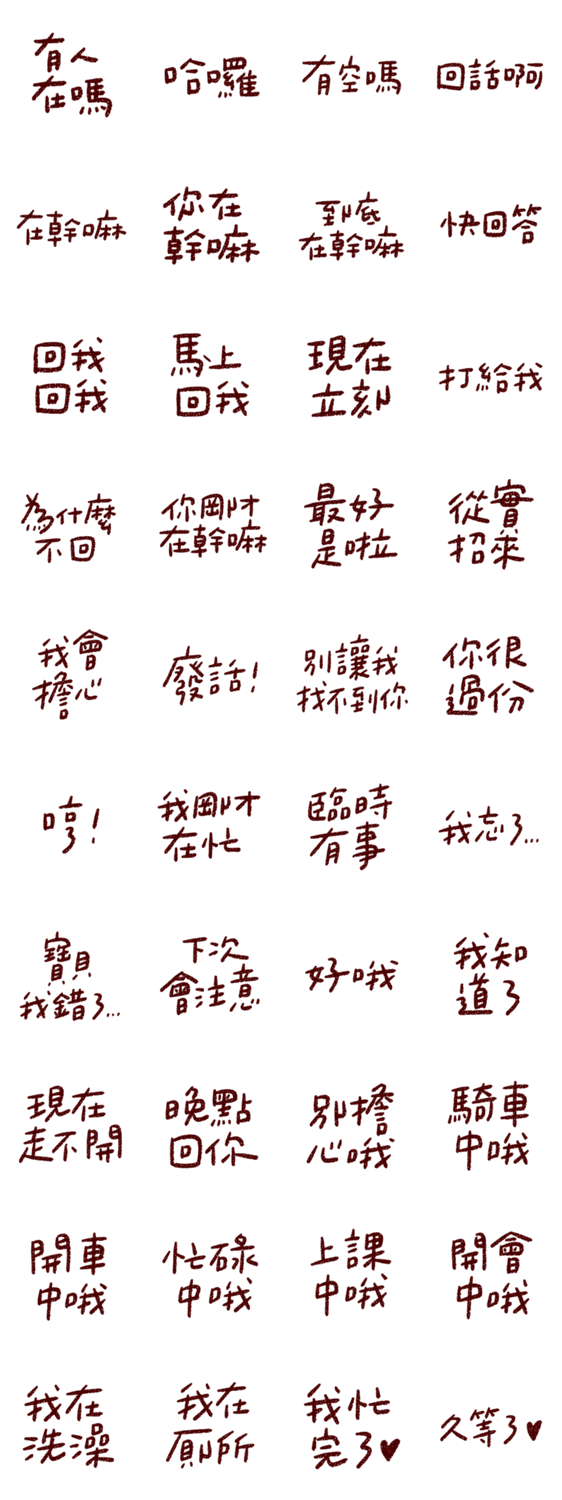 有人
在嗎
哈囉
有空嗎
回話啊
在幹嘛
你在
幹嘛
到底
在幹嘛
快回答
回我
回我
馬上
回我
現在
立刻
打給我
為什麼
不回
你剛才
在幹嘛
最好
是啦
從實
招來
我會
擔心
發話!
別讓我
找不到你
你很
過份
哼!
我剛才
在忙
臨時
有事
我忘了...
寶貝
我錯了...
下次
會注意
好哦
我知
道了
現在
走不開
晚點
回你
別擔
心哦
騎車
中哦
開車
中哦
忙碌
中哦
上課
中哦
開會
中哦
我在
洗澡
我在
廁所
我忙
完了♥
久等了♥